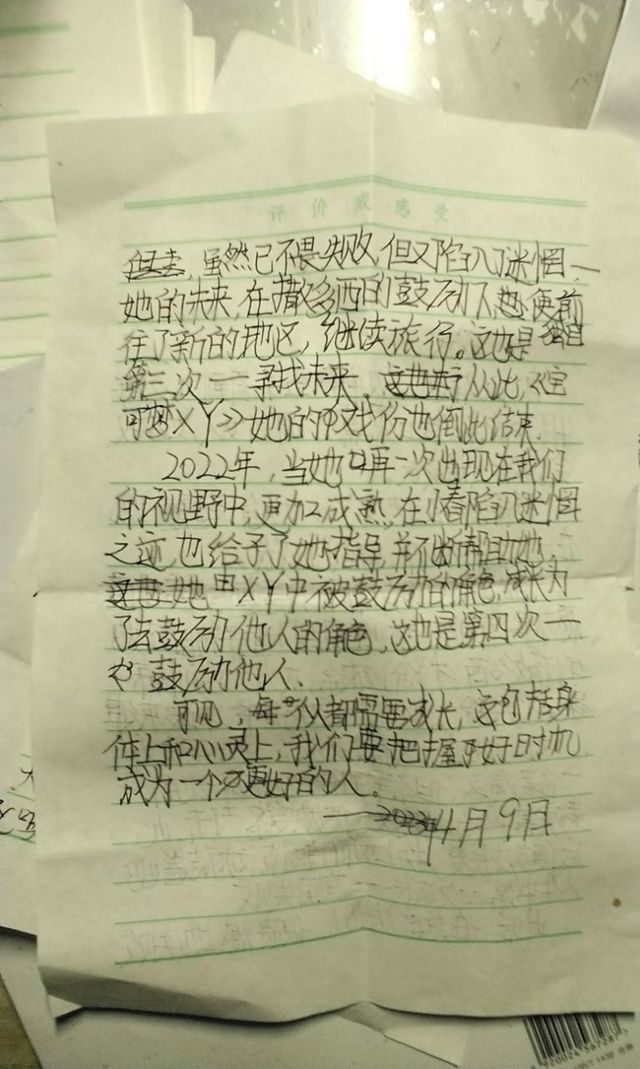 评价或感受
虽然已不畏失败,但又陷入了迷惘,一
她的未来,在撒多西的鼓励下,她便前
往了新的地区,继续旅行。这也是独自
第三次——寻找未来,从此,《宝
可梦XY》她的戏份也到此结束.
2022年,当她再一次出现在我们
的视野中,更加成熟,在小春陷入迷惘
之迹,也给予了她指导,并不断帮助她.
她由XY中被鼓励的角色,成长为
了去鼓励他人的角色,这也是第四次一
鼓励他人.
可见,每个人都需要成长,这包括身
体上和心灵上,我们要把握好时机
成为一个更好的人.
——4月9日